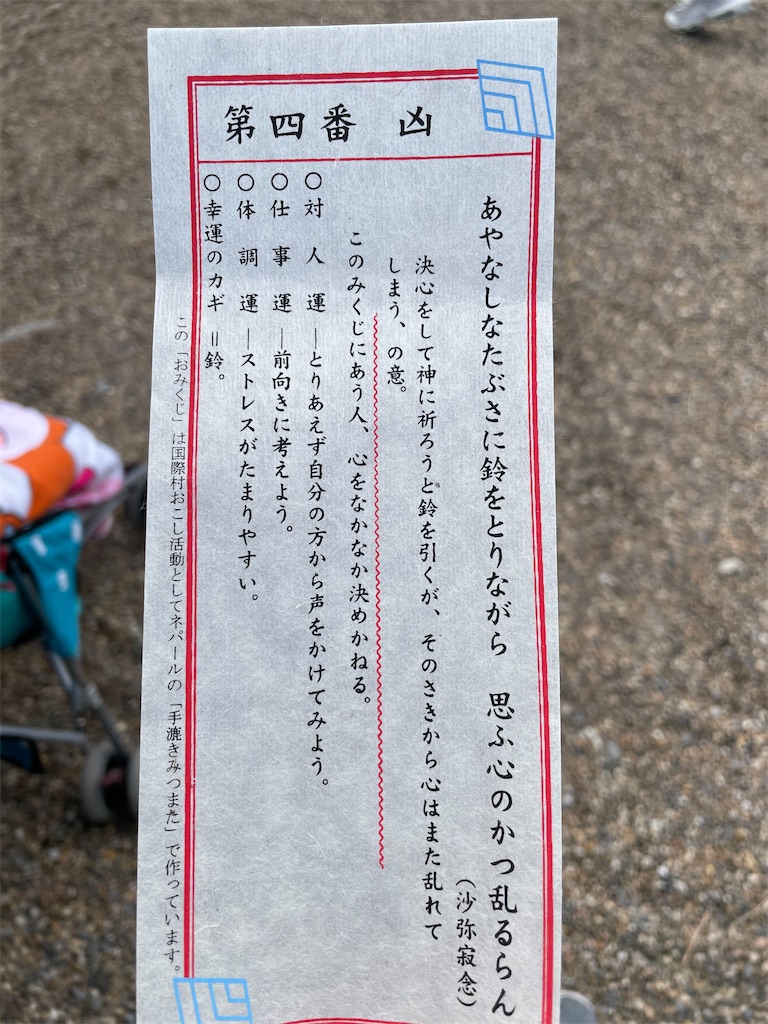 第四番 凶
あやなしなたぶさに鈴をとりながら 思ふ心のかつ乱るらん
(沙弥寂念)
決心をして神に祈ろうと鈴を引くが、そのさきから心はまた乱れて
しまう、の意。
このみくじにあう人、心をなかなか決めかねる。
○対人運―とりあえず自分の方から声をかけてみよう。
○仕事運―前向きに考えよう。
○体調運―ストレスがたまりやすい。
○幸運のカギ=鈴。
この「おみくじ」は国際村おこし活動としてネパールの「手漉きみつまた」で作っています。